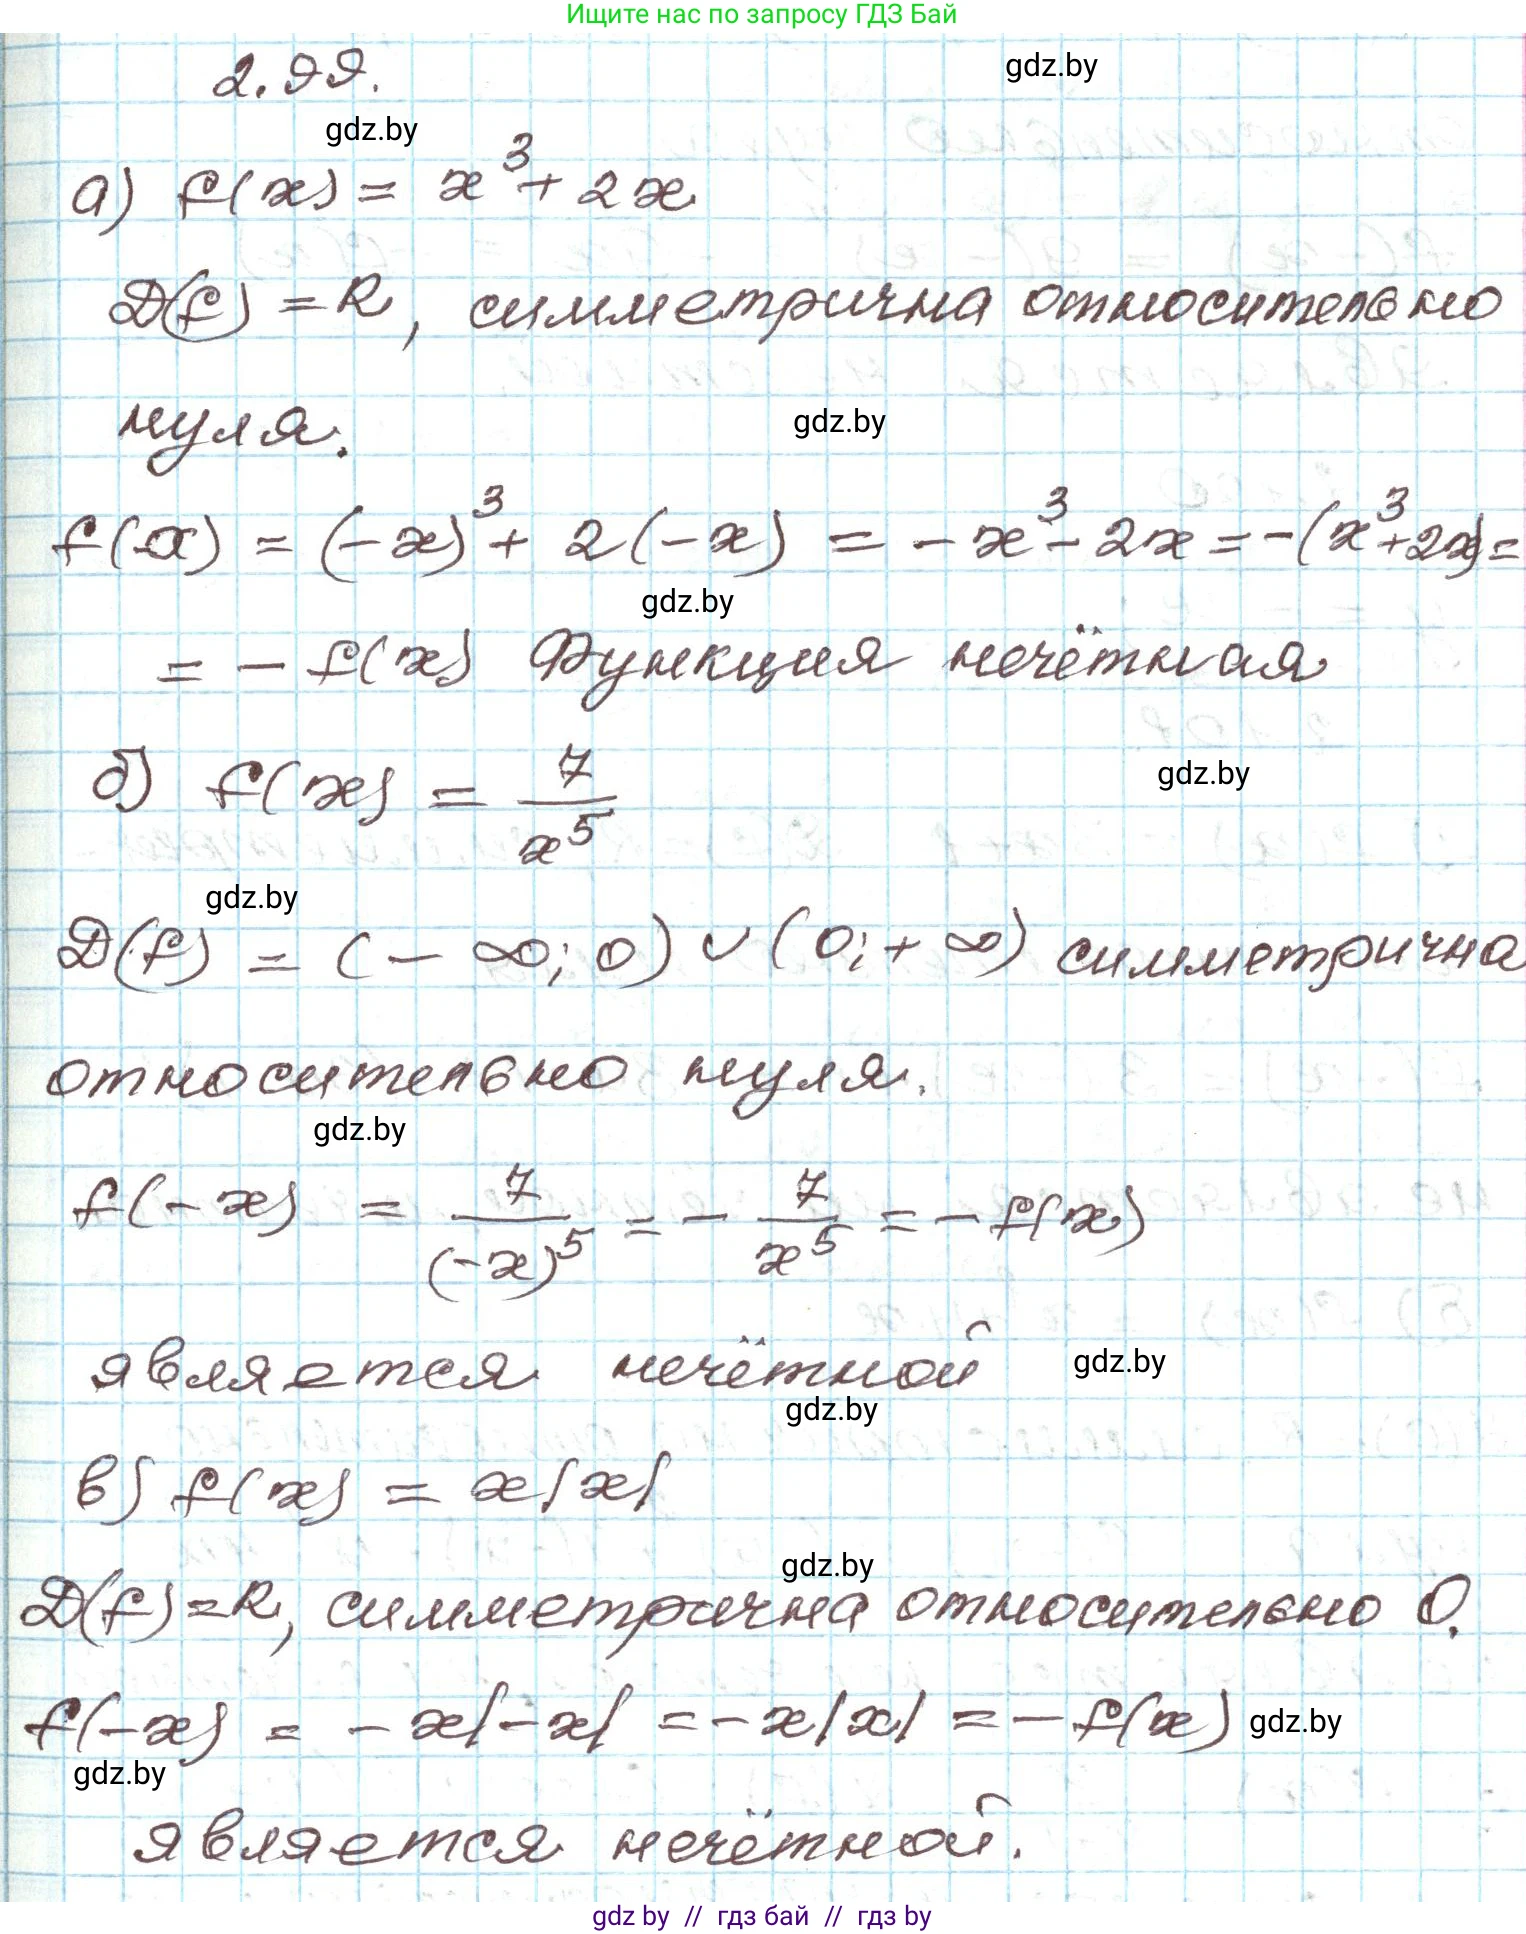 Ищите нас по запросу ГДЗ Бай
2.99.
gdz.by
gdz.by
а) f(x) = x³ + 2x
D(f) = R, симметрична относительно
нуля.
gdz.by
f(-x) = (-x)³ + 2(-x) = -x³ - 2x = -(x³+2x) =
gdz.by
= - f(x) Функция нечётная
б) f(x) = 7/x⁵
gdz.by
gdz.by
D(f) = (- ∞; 0) ∪ (0; + ∞) симметрична
относительно нуля.
gdz.by
f(-x) = 7/(-x)⁵ = - 7/x⁵ = - f(x)
является нечётной
gdz.by
gdz.by
в) f(x) = x|x|
gdz.by
D(f) = R, симметрична относительно 0.
f(-x) = - x|-x| = - x|x| = - f(x)
gdz.by
gdz.by
является нечётной.
gdz by // гдз бай // гдз by